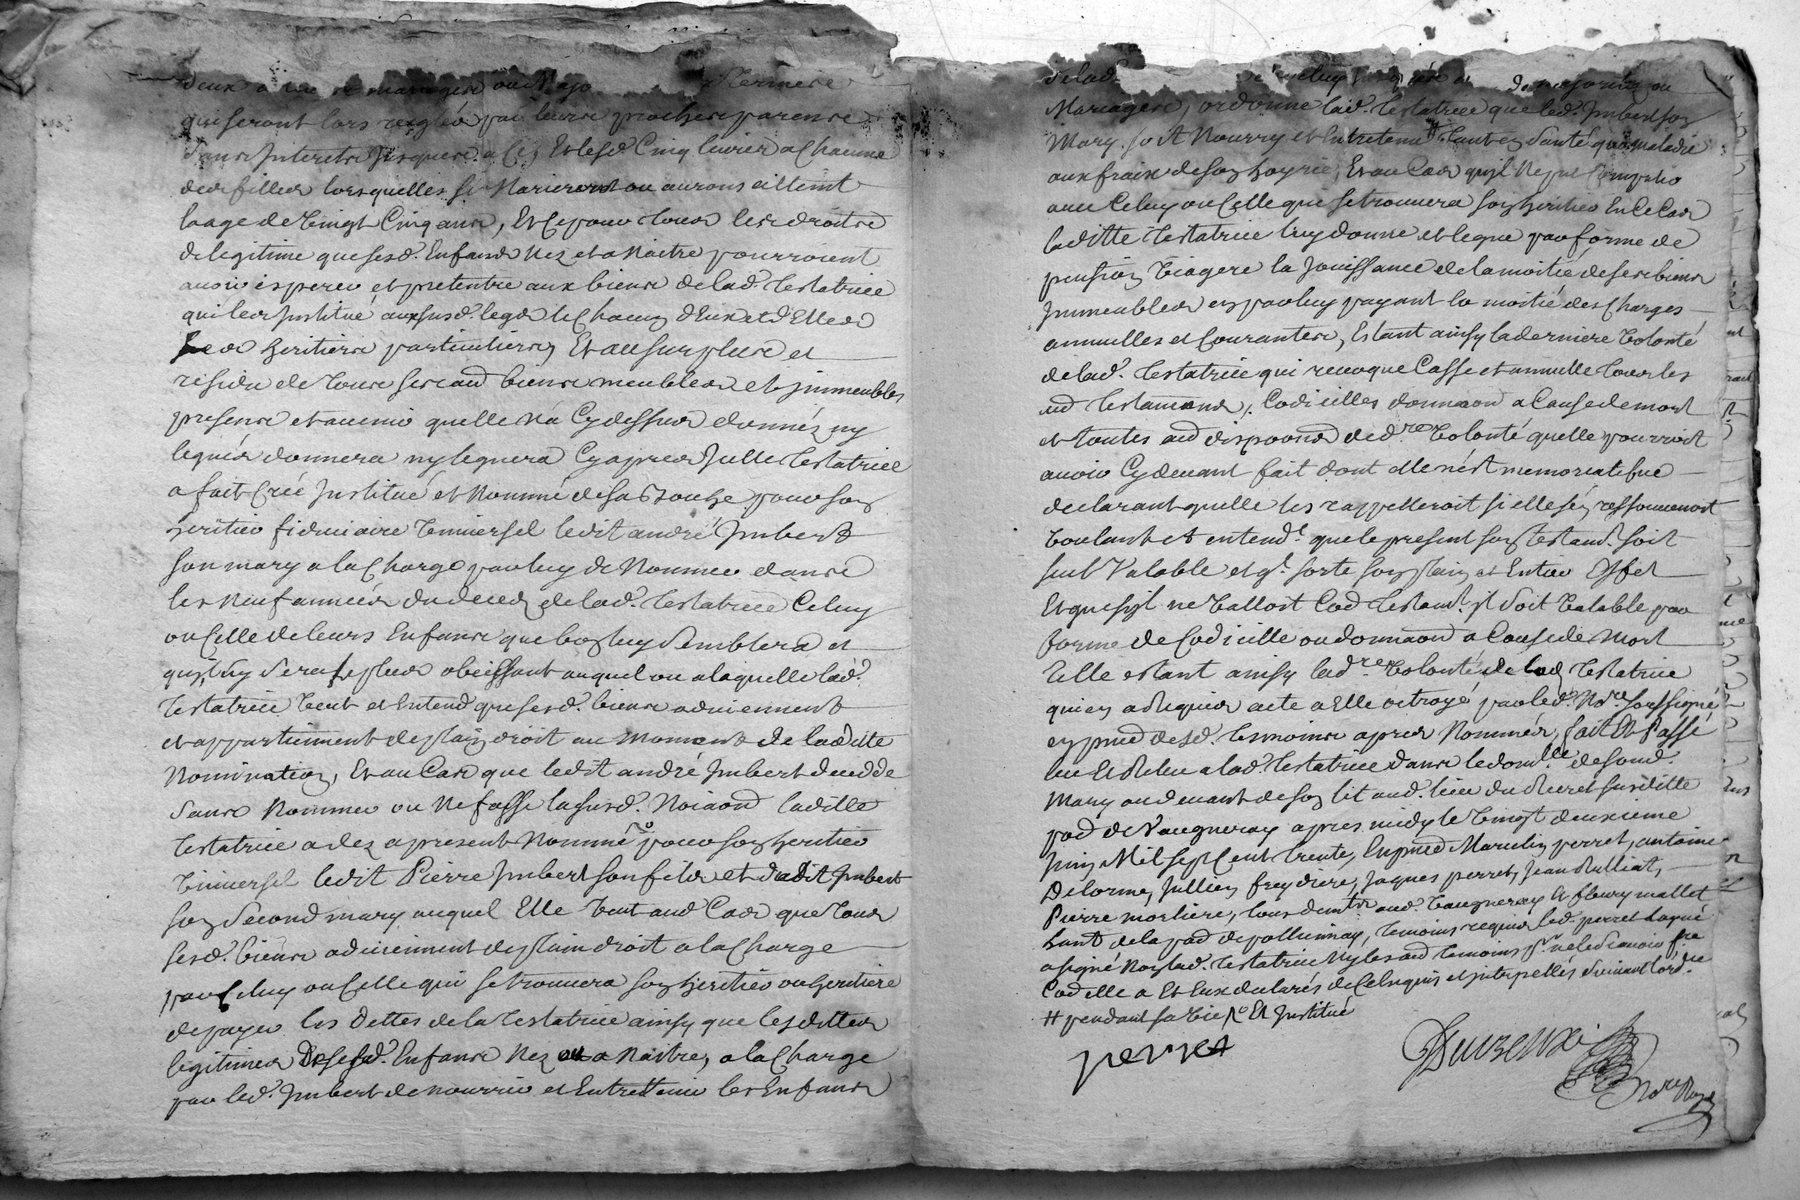 deux a
qui seront lors reglés par leurs proches parens
sans Interetz jusques a ce, Et lesd. Cinq livres a chacune
des filles lorsquelles se Marieront ou aurons atteint
laage de Vingt Cinq ans, Et Ce pour tous les droits
de legitime que sesd. Enfans Nez et a Naitre pourroient
avoir esperer et pretentre aux biens de lad. testatrice
qui les Institue auxsusd. legs Chacun d'Eux et d'Elles
Ses heritiers particuliers, Et au surplus et
residu de tous ses aud biens meubles et immeubles
presens et avenir quelle n'a Cy dessus donnés ny
legués donnera ny leguera Cy apres Jcelle testatrice
a fait Créé Institué et Nommé de sa Bouche pour son
heritier fiduciaire Vniversel ledit andré Jmbert
son mary a la Charge par luy de Nommer dans
les Neuf années du deced de lad. testatrice Celuy
ou Celle de leurs Enfans que bon luy Semblera et
qui luy Sera le plus obeissant auquel ou a laquelle lad.
testatrice Veut et Entend que sesd. biens adviennent
et appartiennent de plain droit au moment de laditte
Nomination, Et au Cas que ledit andré Jmbert decedde
Sans Nommer ou Ne fasse lasusd. Noiaon laditte
testatrice a dez a present Nommé ro pour son heritier
Vniversel ledit Pierre Jmbert son fils et dudit Jmbert
son Second mary auquel Elle Veut aud Cas que tous
sesd. biens advieiennent de plain droit a la Charge
par Celuy ou Celle qui se trouvera son heritier ou heritiere
de payer les Dettes de la testatrice ainsy que lesdittes
legitimes de sesd. Enfans Nez ou a Naitre, a la Charge
par led. Jmbert de nourrir et Entretenir les Enfans
de lad.
Mariages, ordonne lad. testatrice que led. Jmbert son
Mary soit Nourry et Entretenu # tant en Santé que maladie
aux fraix de son hoyrie, Et au Cas quil Ne put
avec Celuy ou Celle que se trouvera son heritier En Ce Cas
laditte testatrice luy donne et legue par forme de
pension Viagere la Jouissance de la moitié de ses biens
Jmmeubles en par luy payant la moitié des Charges
annuelles et Courantes, Estant ainsy la derniere Volonté
de lad. testatrice qui revoque Casse et annulle tous les
aud testamens, Codicilles donnaons a Cause de mort
et toutes aud dispoons de d.re Volonté quelle pourroit
avoir Cy devant fait dont elle n'est memorative
declarant quelle les rappelleroit si elle s'en ressouvenoit
Voulant et entend. que le present son testam. soit
seul Valable et q. sorte son plain et Entier Effet
Et que s'jl ne Valloit Cod testam. jl Soit Valable par
forme de Codicille ou donnaon a Cause de Mort
telle estant ainsy lad. re Volonté de lad testatrice
qui en a Requis acte a Elle octroyé par led. No.re soussigné
en pnce desd. temoins apres Nommés, fait Et Passé
leu Et Releu a lad. testatrice dans le dom.lle de sond.
Mary au devant de son lit aud. lieu du susditte
pad de Vaugneray apres midy le Vingt deuxieme
Juin Mil Sept Cent trente, En pnce Marcelin perret, antoine
Delorme, Jullien freydiere, Jaques perret, Jean Rulliat,
Pierre morliere, tous dem.tn aud. Vaugneray Et fleury mallet
hant de la pad de pollionnay, temoins requis led. perret a signé
a signé Non lad. testatrice Ny les aud temoins p. ne le Scavoir f.re
Cod elle a Et Eux declarés de Ce Enquis et interpellés Suivant lord.ce
# pendant sa vie ro Et Institué
perret